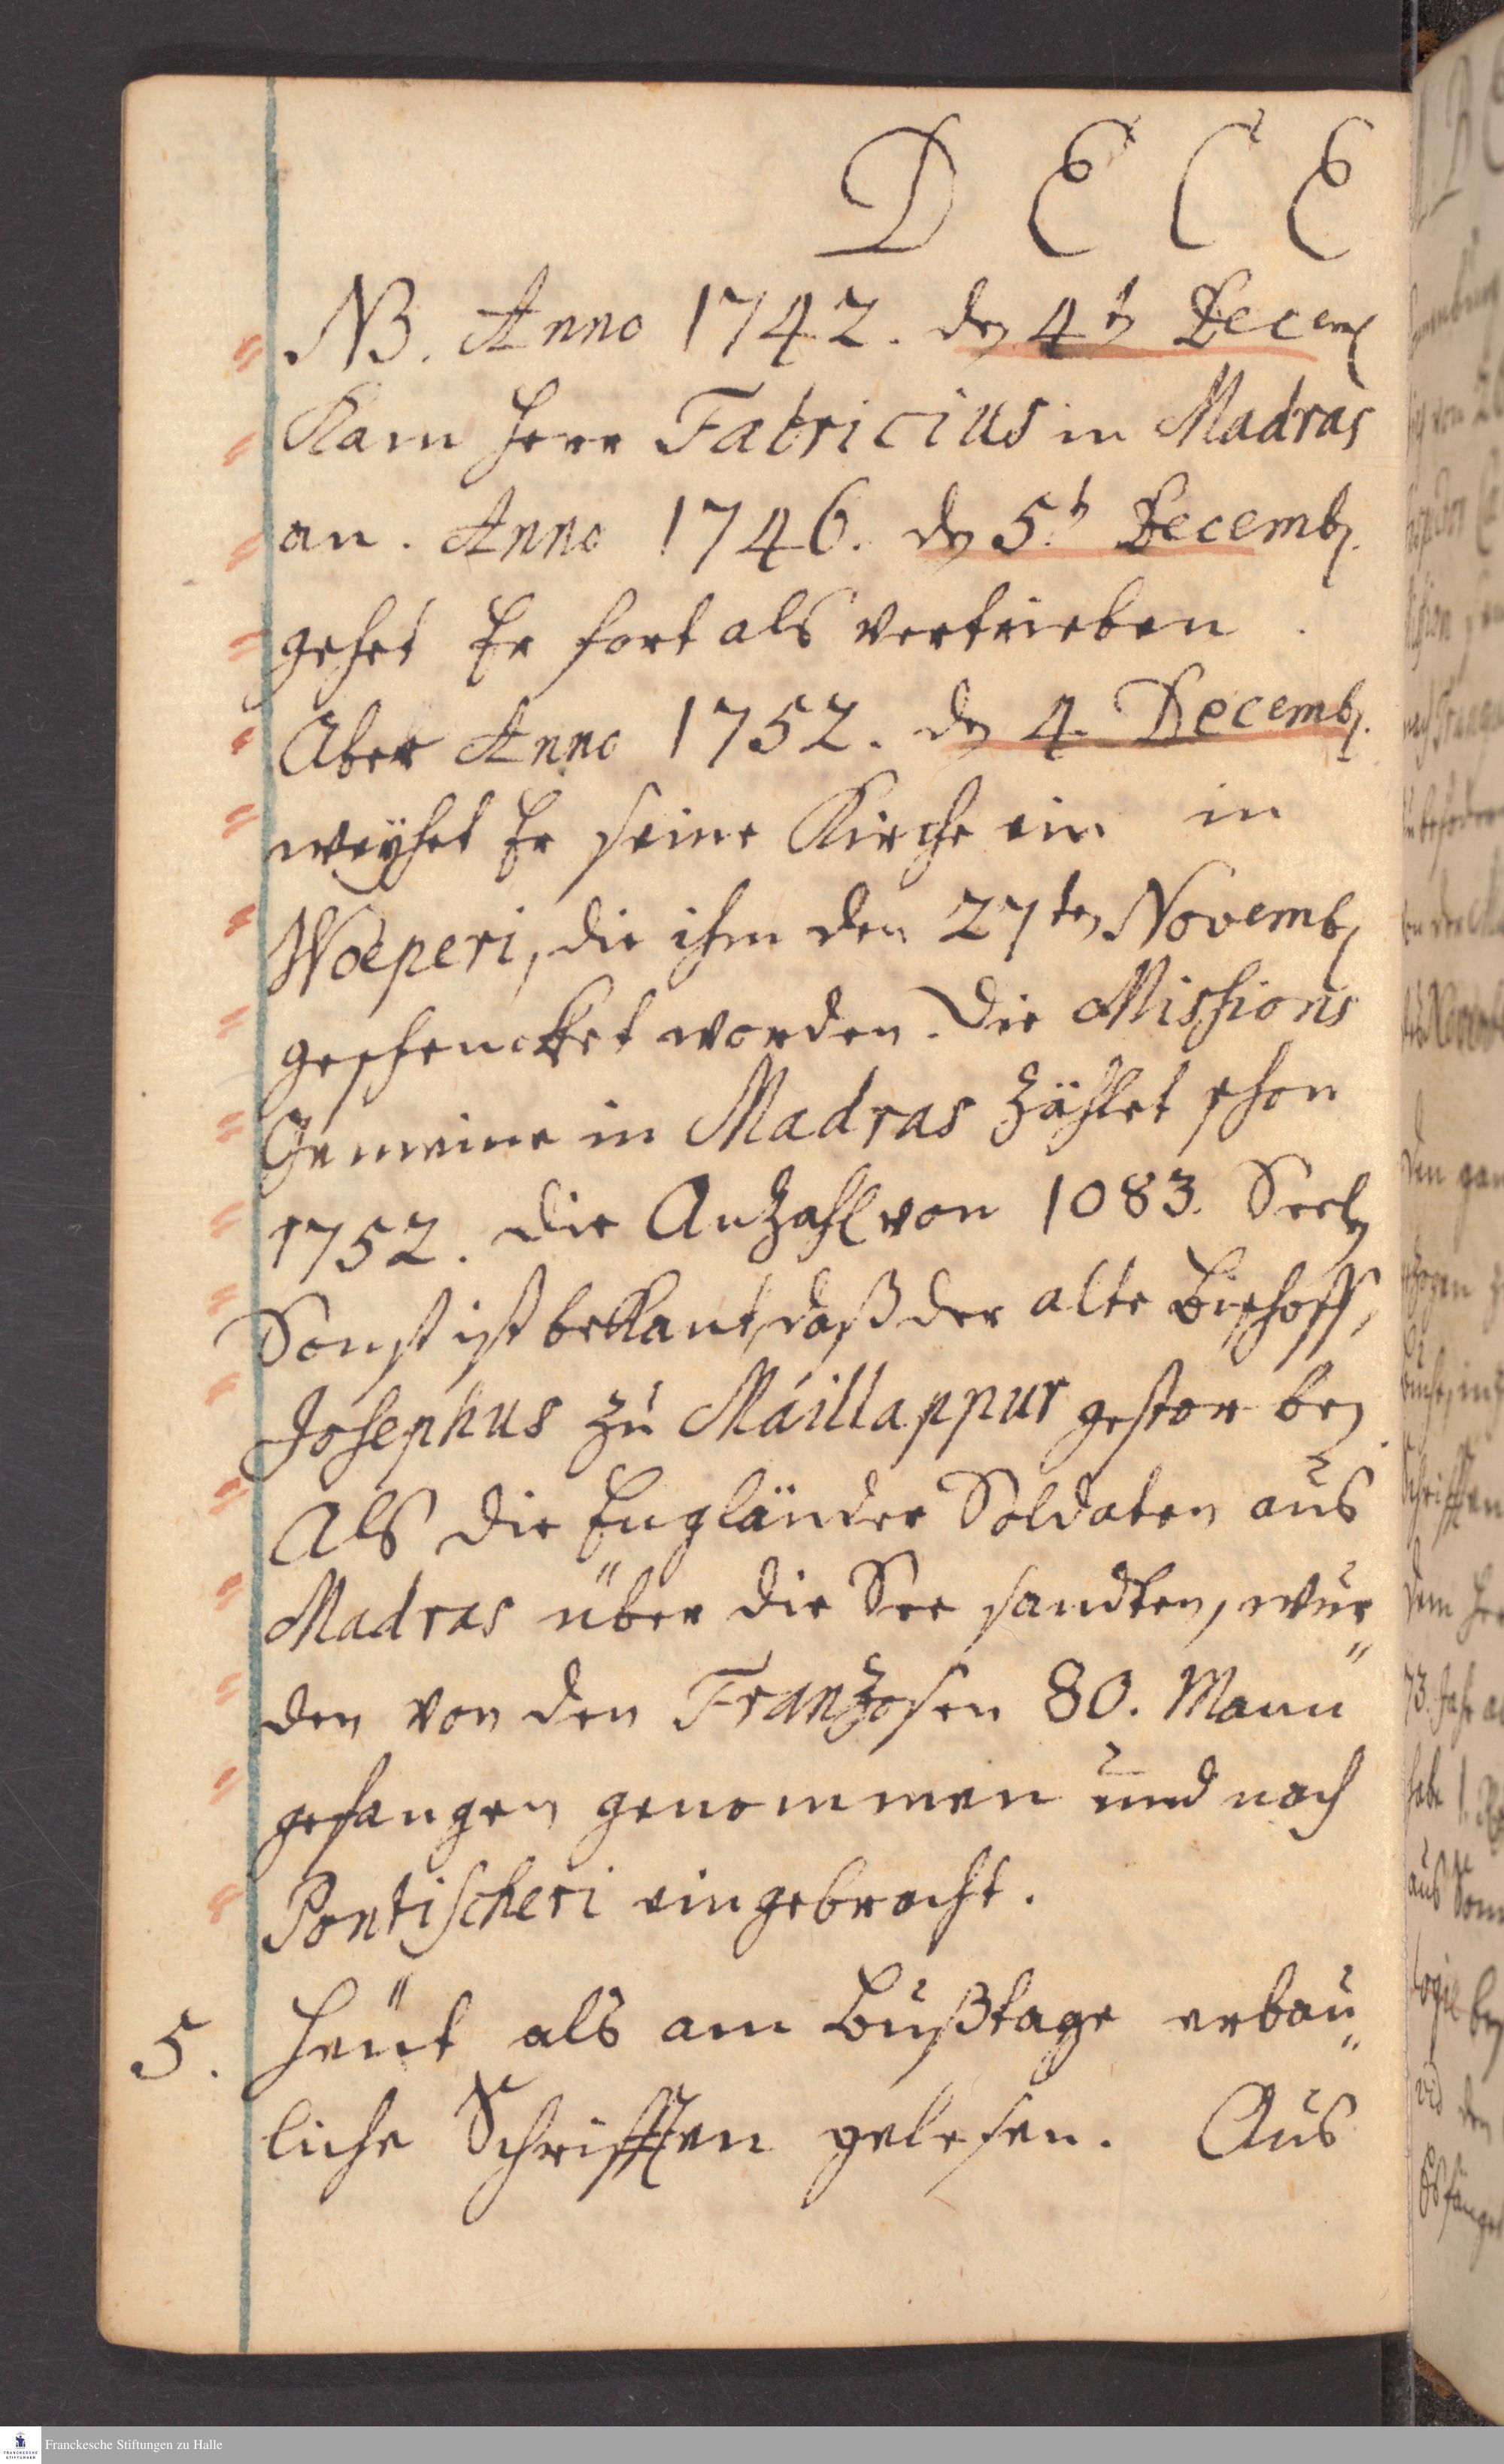 D E C E
NB. Anno 1742. den 4ten Decemb
Kam Herr Fabricius in Madras
an. Anno 1746. den 5t Decemb.
gehet Er fort als vertrieben.
Aber Anno 1752. den 4. Decemb.
weyhet Er seine Kirche ein in
Woeperi, die ihm den 27ten Novemb
geschencket worden. Die Missions
Gemeine in Madras zählet schon
1752. die Anzahl von 1083. Seelen
Sonst ist bekant, daß der alte Bischoff,
Josephus zu Máillappur gestorben.
Als die Engländer Soldaten aus
Madras über die See sandten, wur"
den von den Franzosen 80. Mann
gefangen genommen und nach
Pontischeri eingebracht.
5. Heüt als am Bußtage erbau"
liche Schrifften gelesen. Aus
Franckesche Stiftungen zu Halle